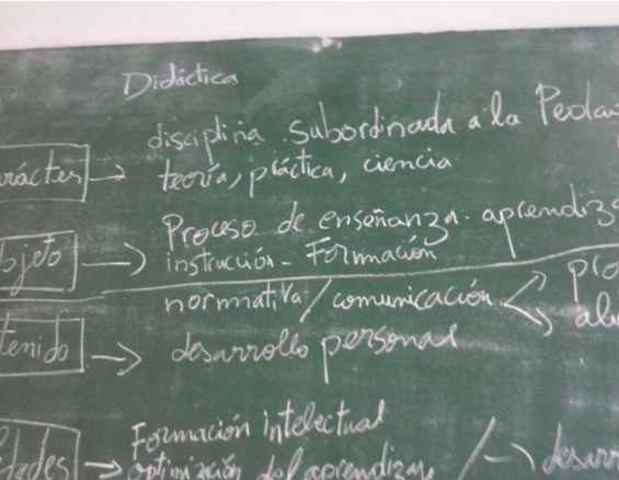 Didáctica
disciplina subordinada a la Peda
ráctes → teoría, práctica, ciencia
Proceso de enseñanza - aprendiza
bjeto → instrucción - Formación
normativa / comunicación
tenido → desarrollo personal
Formación intelectual
dades → optimización del aprendizaje / → desarr